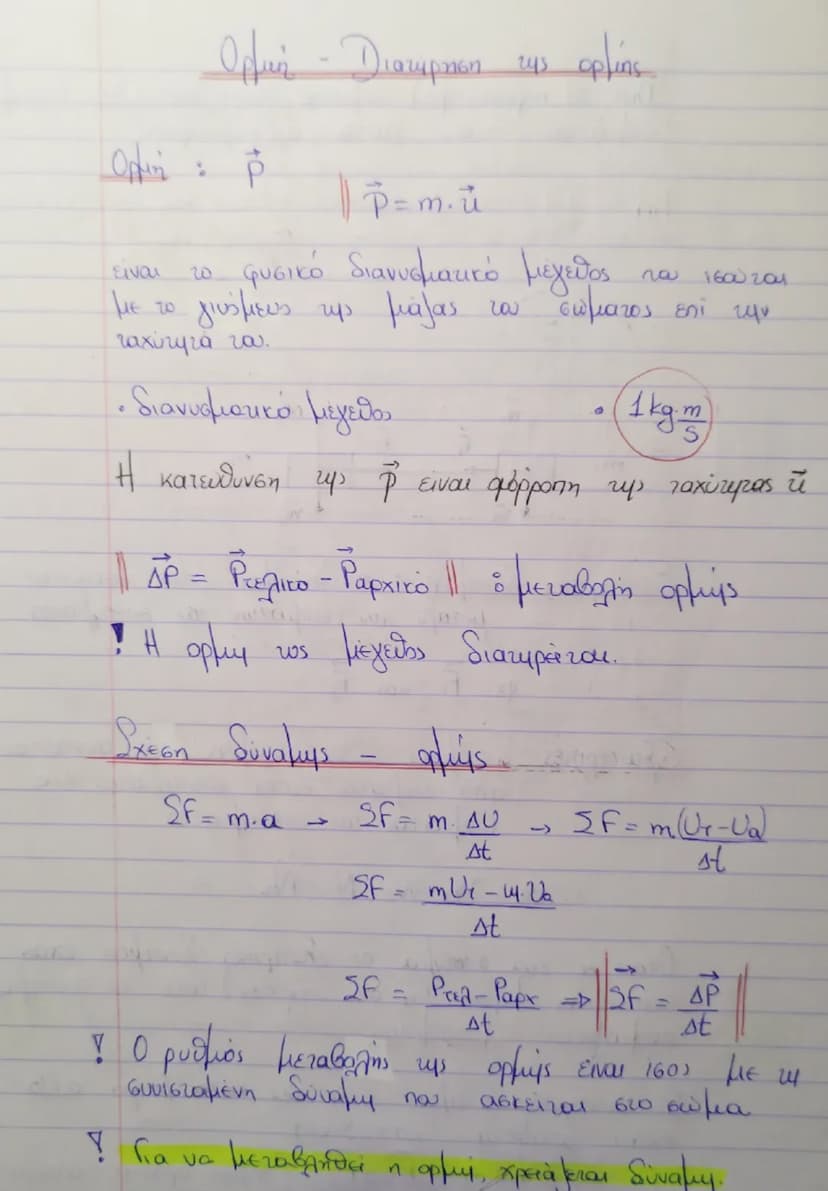 Ορμή - Διατήρηση της ορμής
Ορμή : p⃗
p⃗ = m · u⃗
είναι το φυσικό διανυσματικό μέγεθος που ισούται
με το γινόμενο της μάζας του σώματος επί την
ταχύτητά του.
• διανυσματικό μέγεθος • 1 kg · m/s
Η κατεύθυνση της p⃗ είναι ομόρροπη της ταχύτητας u⃗
ΔP⃗ = P⃗τελικό - P⃗αρχικό : μεταβολή ορμής
! Η ορμή ως μέγεθος διατηρείται.
Σχέση δύναμης - ορμής
ΣF = m·a → ΣF = m · ΔU/Δt → ΣF = m(Uτ - Uα)/Δt
ΣF = (mUτ - m·Uα)/Δt
ΣF = (Pτελ - Pαρχ)/Δt ⇒ ΣF⃗ = ΔP⃗/Δt
! Ο ρυθμός μεταβολής της ορμής είναι ισος με τη
συνισταμένη δύναμη που ασκείται στο σώμα
! Για να μεταβληθεί η ορμή, χρειάζεται δύναμη.